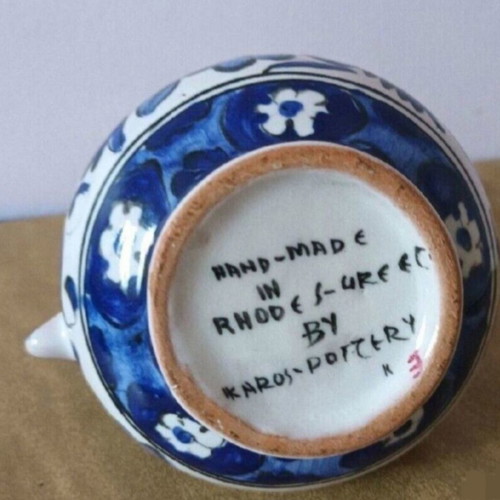 HAND-MADE
IN
RHODES-GREEC
BY
KAROS-POTTERY
K